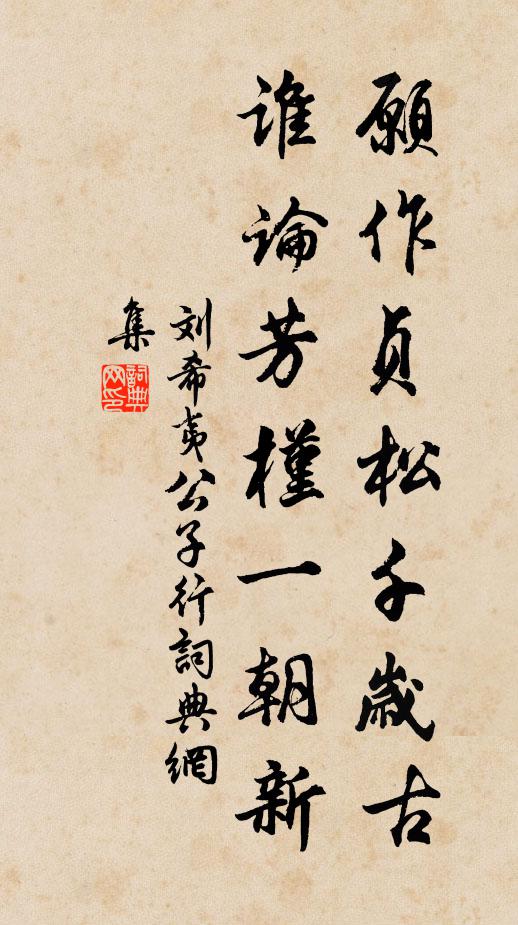 願作貞松千歲古
誰論芳槿一朝新
刘希夷公子行詞典網
集
詞典
网印